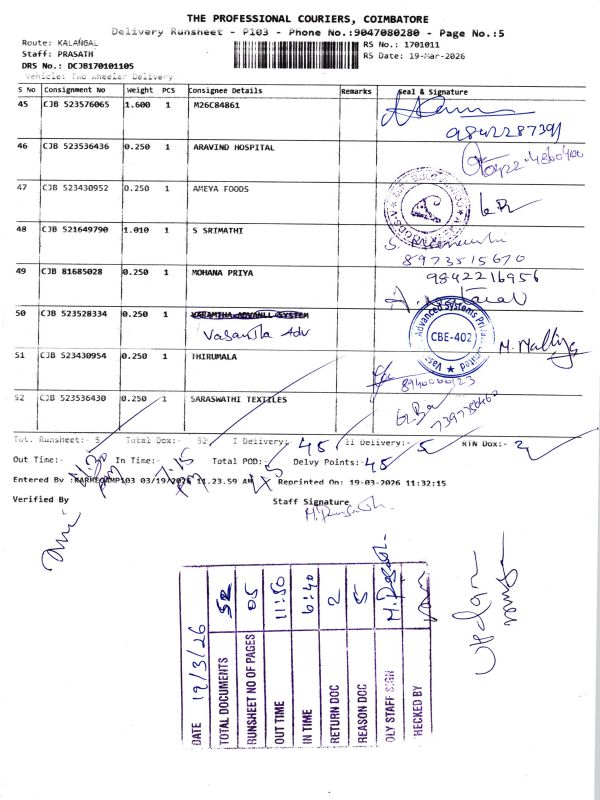 THE PROFESSIONAL COURIERS, COIMBATORE
Delivery Runsheet - P103 - Phone No.:9047080280 - Page No.:5
Route: KALANGAL
RS No.: 1701011
Staff: PRASATH
RS Date: 19-Mar-2026
DRS No.: DCJB170101105
Vehicle: Two Wheeler Delivery
S No Consignment No Weight PCS Consignee Details Remarks Seal & Signature
45 CJB 523576065 1.600 1 M26C84861
9842287391
46 CJB 523536436 0.250 1 ARAVIND HOSPITAL
47 CJB 523430952 0.250 1 AMEYA FOODS
48 CJB 521649790 1.010 1 S SRIMATHI
8973515670
49 CJB 81685028 0.250 1 MOHANA PRIYA
9842216956
50 CJB 523528334 0.250 1
Vasantha Adv
Advanced Systems
CBE-402
51 CJB 523430954 0.250 1 THIRUMALA
52 CJB 523536430 0.250 1 SARASWATHI TEXTILES
Tot. Runsheet:- 5 Total Dox:- 52 I Delivery:- 45 II Delivery:- 5 RTN Dox:- 2
Out Time:- In Time:- 7.15 Total POD:- 45 Delvy Points:- 45
Entered By : 03/19/2026 11.23.59 AM Reprinted On: 19-03-2026 11:32:15
Verified By
Staff Signature
M. Prasath.
DATE 19/3/26
TOTAL DOCUMENTS 52
RUNSHEET NO OF PAGES 05
OUT TIME 11:50
IN TIME 6:40
RETURN DOC 2
REASON DOC 5
DLY STAFF SIGN M. Prasath.
CHECKED BY